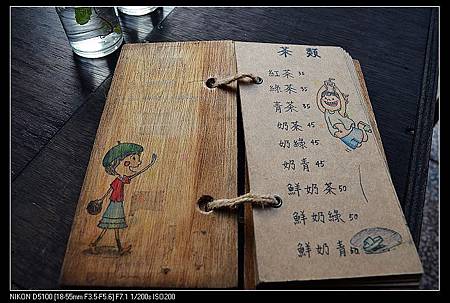 茶 類
紅茶 35
綠茶 35
青茶 35
奶茶 45
奶綠 45
奶青 45
鮮奶茶 50
鮮奶綠 50
鮮奶青 50
NIKON D5100 [18-55mm F3.5-F5.6] F7.1 1/200s ISO200